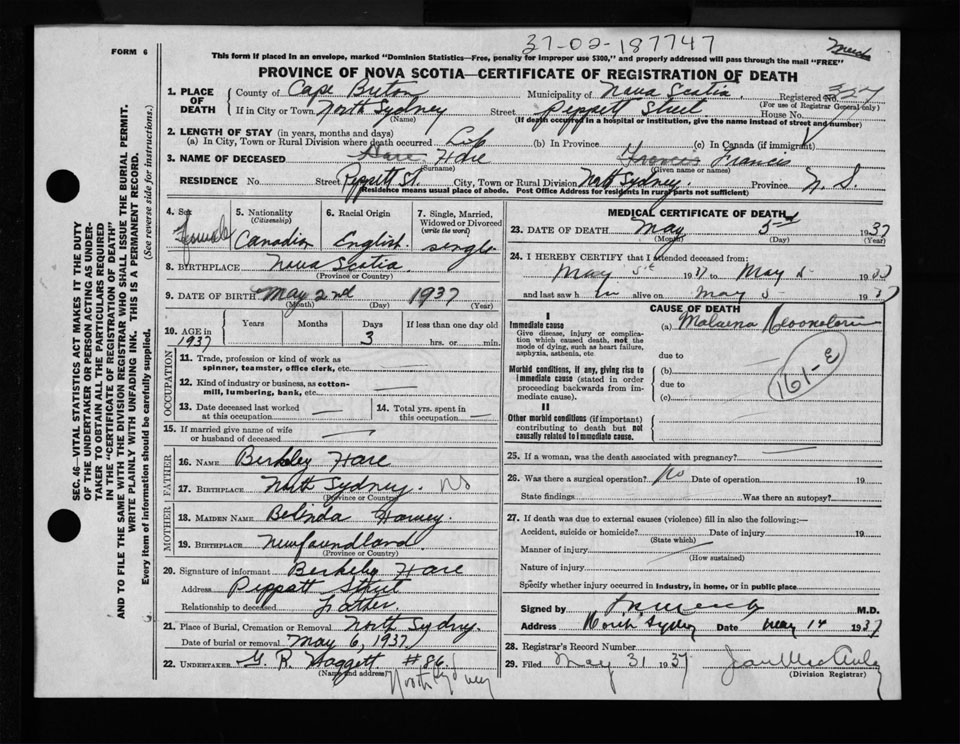 37-02-187747
FORM 6
This form if placed in an envelope, marked "Dominion Statistics—Free, penalty for improper use $300," and properly addressed will pass through the mail "FREE"
PROVINCE OF NOVA SCOTIA—CERTIFICATE OF REGISTRATION OF DEATH
SEC. 46—VITAL STATISTICS ACT MAKES IT THE DUTY
OF THE UNDERTAKER OR PERSON ACTING AS UNDER-
TAKER TO OBTAIN ALL THE PARTICULARS REQUIRED
IN THE "CERTIFICATE OF REGISTRATION OF DEATH"
AND TO FILE THE SAME WITH THE DIVISION REGISTRAR WHO SHALL ISSUE THE BURIAL PERMIT.
WRITE PLAINLY WITH UNFADING INK. THIS IS A PERMANENT RECORD.
Every item of information should be carefully supplied. (See reverse side for instructions.)
1. PLACE OF DEATH County of Cape Breton Municipality of Nova Scotia Registered No. 327
(For use of Registrar General only)
If in City or Town North Sydney Street Peppett Street House No.
(Name) (If death occurred in a hospital or institution, give the name instead of street and number)
2. LENGTH OF STAY (in years, months and days)
(a) In City, Town or Rural Division where death occurred Life (b) In Province (c) In Canada (if immigrant)
3. NAME OF DECEASED Hare Hare Frances Francis
(Surname) (Given name or names)
RESIDENCE No. Street Peppett St. City, Town or Rural Division North Sydney. Province N. S.
(Residence means usual place of abode. Post Office Address for residents in rural parts not sufficient)
4. Sex Female
5. Nationality (Citizenship) Canadian
6. Racial Origin English.
7. Single, Married, Widowed or Divorced (write the word) single
8. BIRTHPLACE Nova Scotia.
(Province or County)
9. DATE OF BIRTH May 2nd 1937
(Month) (Day) (Year)
10. AGE in 1937 Years Months Days 3 If less than one day old hrs. or min.
OCCUPATION
11. Trade, profession or kind of work as
spinner, teamster, office clerk, etc.
12. Kind of industry or business, as cotton-
mill, lumbering, bank, etc.
13. Date deceased last worked
at this occupation
14. Total yrs. spent in
this occupation
15. If married give name of wife
or husband of deceased
FATHER
16. NAME Berkley Hare
17. BIRTHPLACE North Sydney. NS
(Province or Country)
MOTHER
18. MAIDEN NAME Belinda Harvey
19. BIRTHPLACE Newfoundland.
(Province or Country)
20. Signature of informant Berkeley Hare
Address Peppett Street
Relationship to deceased Father.
21. Place of Burial, Cremation or Removal North Sydney.
Date of burial or removal May 6, 1937
22. UNDERTAKER G. R. Haggett #86
(Name and address) North Sydney
MEDICAL CERTIFICATE OF DEATH
23. DATE OF DEATH May 5 1937
(Month) (Day) (Year)
24. I HEREBY CERTIFY that I attended deceased from:
May 1937 to May 5 1937
and last saw h alive on May 5 1937
CAUSE OF DEATH
I
Immediate cause
Give disease, injury or complica-
tion which caused death, not the
mode of dying, such as heart failure,
asphyxia, asthenia, etc
(a) Melaena Neonatorum
due to
Morbid conditions, if any, giving rise to
immediate cause (stated in order
proceeding backwards from im-
mediate cause).
(b)
due to
(c)
161-E
II
Other morbid conditions (if important)
contributing to death but not
causally related to immediate cause.
25. If a woman, was the death associated with pregnancy?
26. Was there a surgical operation? No Date of operation 19
State findings Was there an autopsy?
27. If death was due to external causes (violence) fill in also the following:—
Accident, suicide or homicide? Date of injury 19
(State which)
Manner of injury
(How sustained)
Nature of injury
Specify whether injury occurred in industry, in home, or in public place
Signed by M.D.
Address North Sydney Date May 14 1937
28. Registrar's Record Number
29. Filed May 31 1937
(Division Registrar)